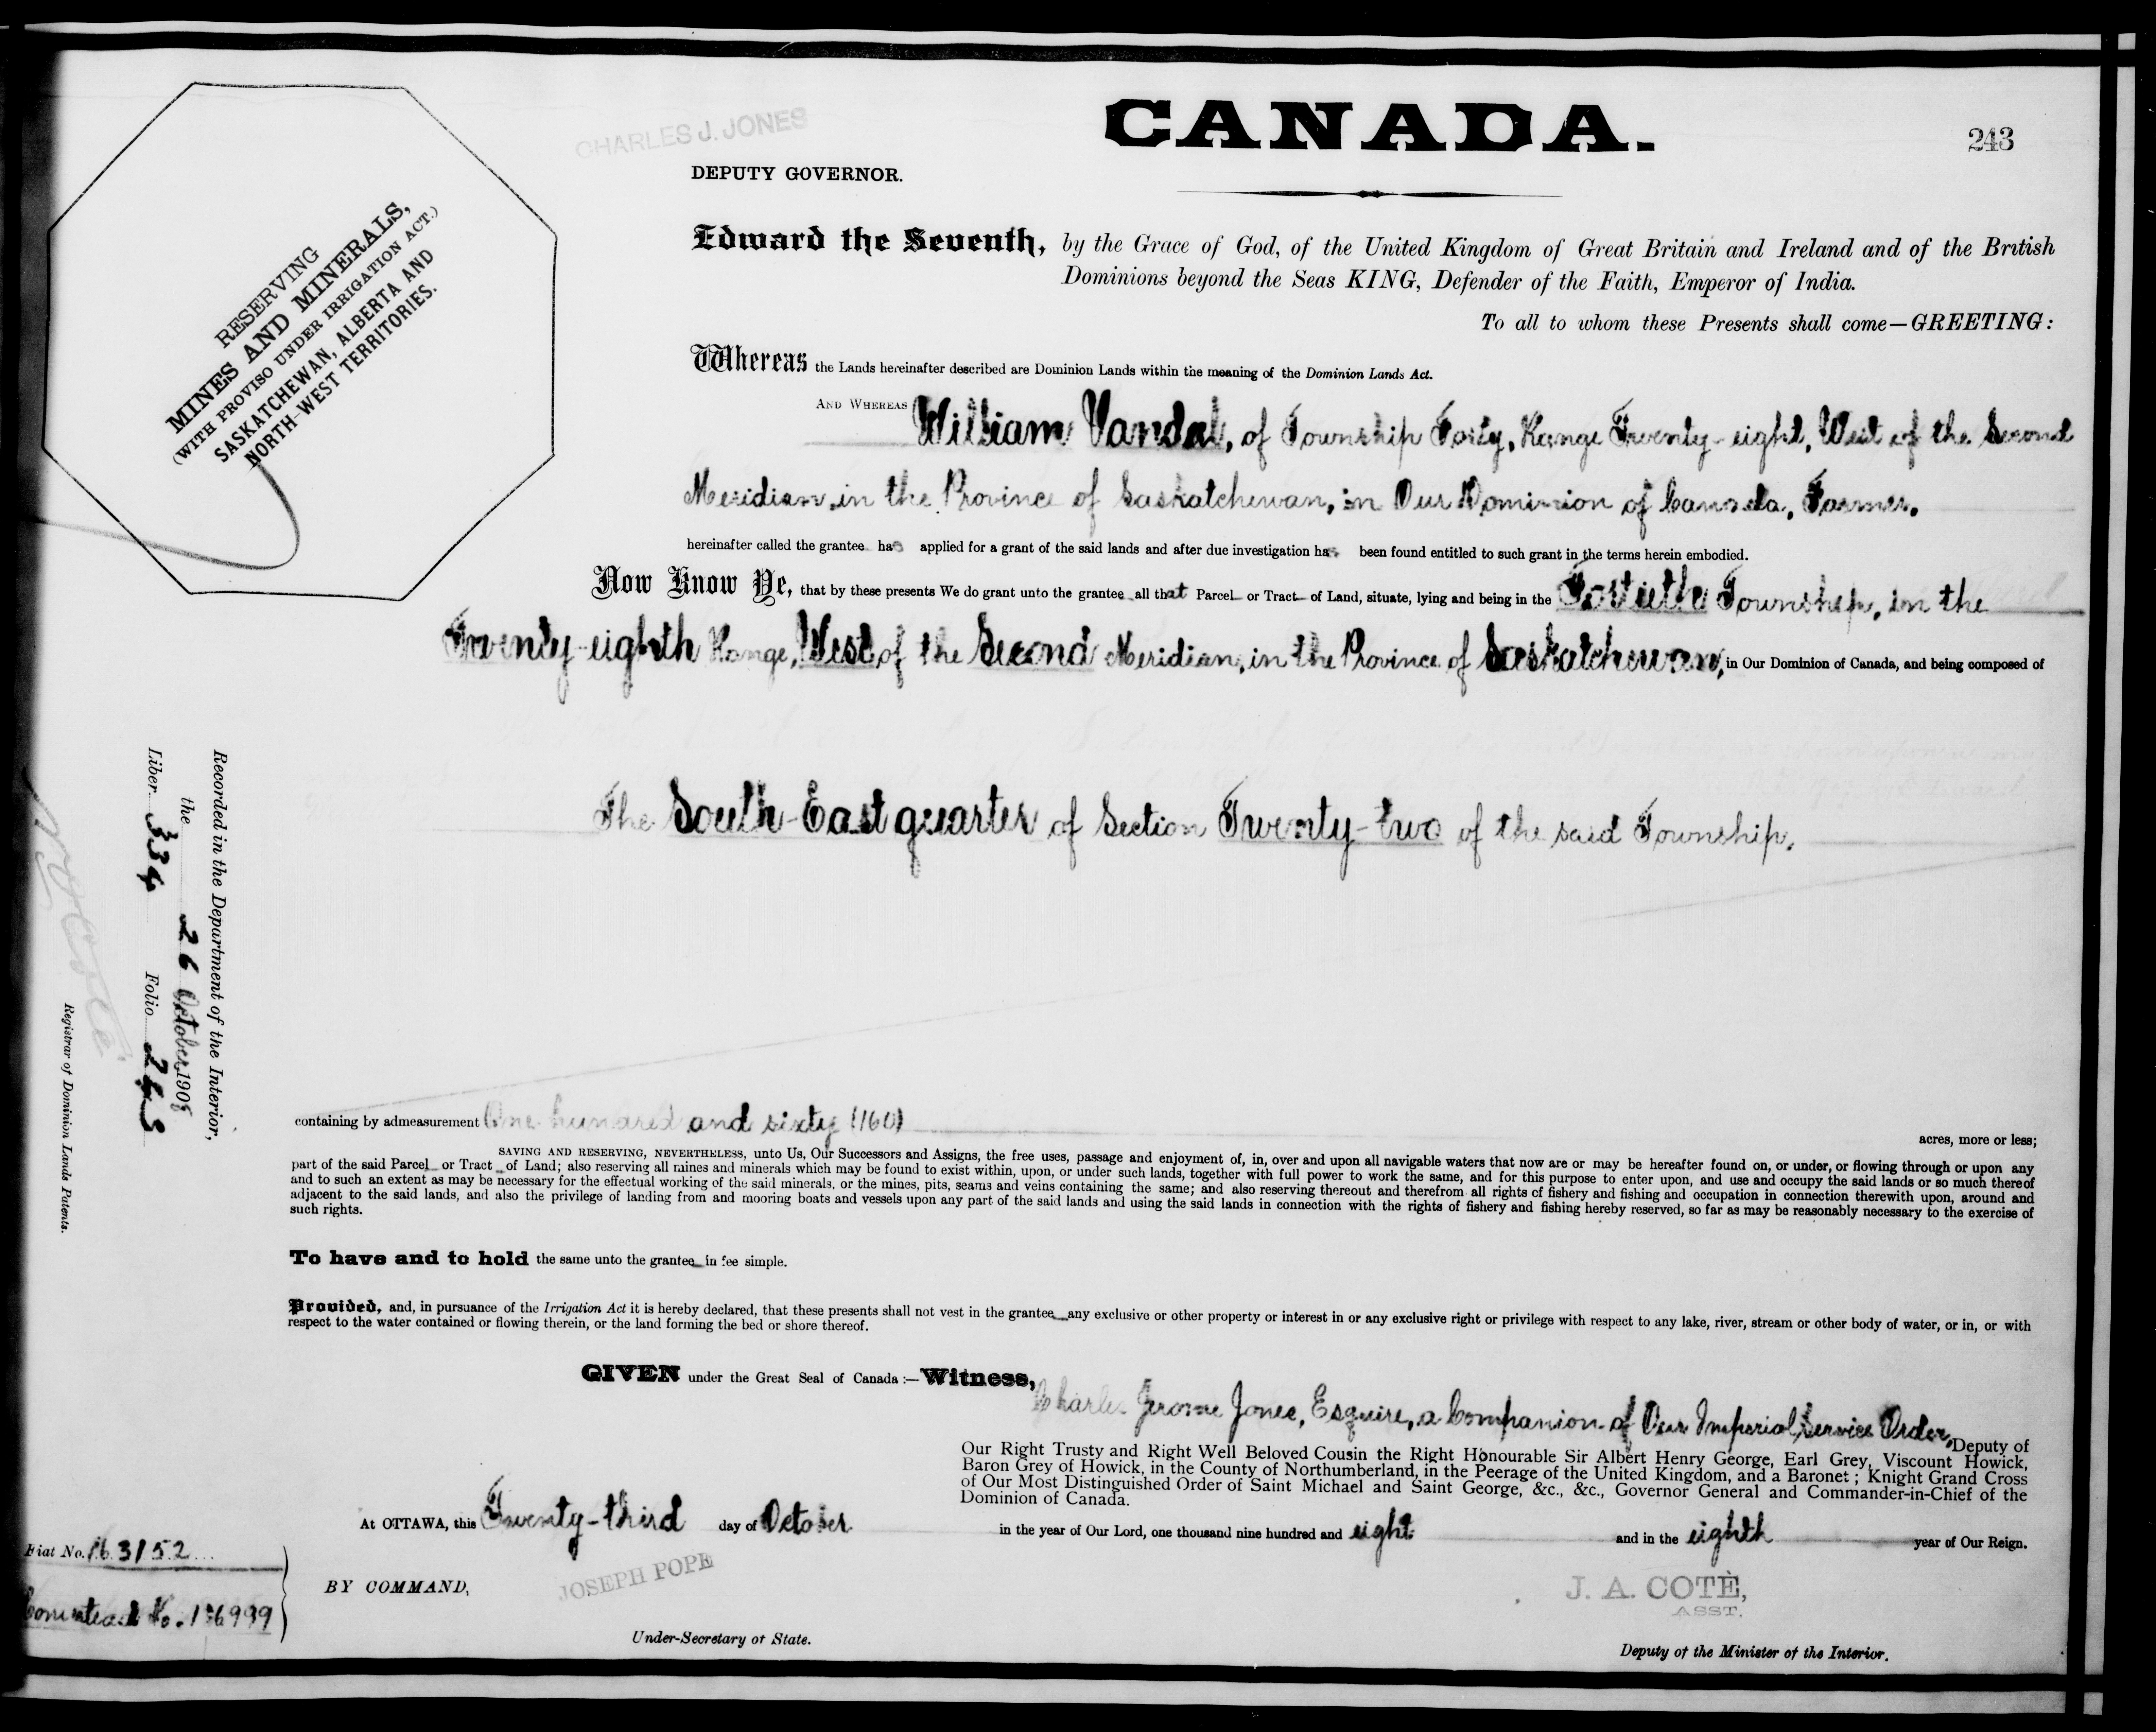 CANADA.
243
CHARLES J. JONES
DEPUTY GOVERNOR.
RESERVING
MINES AND MINERALS,
(WITH PROVISO UNDER IRRIGATION ACT.)
SASKATCHEWAN, ALBERTA AND
NORTH-WEST TERRITORIES.
Edward the Seventh, by the Grace of God, of the United Kingdom of Great Britain and Ireland and of the British
Dominions beyond the Seas KING, Defender of the Faith, Emperor of India.
To all to whom these Presents shall come—GREETING:
Whereas the Lands hereinafter described are Dominion Lands within the meaning of the Dominion Lands Act.
AND WHEREAS William Vandal, of Township Forty, Range Twenty-eight, West of the Second
Meridian, in the Province of Saskatchewan, in Our Dominion of Canada, Farmer,
hereinafter called the grantee has applied for a grant of the said lands and after due investigation has been found entitled to such grant in the terms herein embodied.
Now Know Ye, that by these presents We do grant unto the grantee all that Parcel or Tract of Land, situate, lying and being in the Fortieth Township, in the
Twenty-eighth Range, West of the Second Meridian, in the Province of Saskatchewan, in Our Dominion of Canada, and being composed of
The South-East quarter of Section Twenty-two of the said Township,
Recorded in the Department of the Interior,
the 26 October 1908
Liber 334 Folio 243
Registrar of Dominion Lands Patents.
containing by admeasurement One hundred and sixty (160) acres, more or less;
SAVING AND RESERVING, NEVERTHELESS, unto Us, Our Successors and Assigns, the free uses, passage and enjoyment of, in, over and upon all navigable waters that now are or may be hereafter found on, or under, or flowing through or upon any
part of the said Parcel or Tract of Land; also reserving all mines and minerals which may be found to exist within, upon, or under such lands, together with full power to work the same, and for this purpose to enter upon, and use and occupy the said lands or so much thereof
and to such an extent as may be necessary for the effectual working of the said minerals, or the mines, pits, seams and veins containing the same; and also reserving thereout and therefrom all rights of fishery and fishing and occupation in connection therewith upon, around and
adjacent to the said lands, and also the privilege of landing from and mooring boats and vessels upon any part of the said lands and using the said lands in connection with the rights of fishery and fishing hereby reserved, so far as may be reasonably necessary to the exercise of
such rights.
To have and to hold the same unto the grantee in fee simple.
Provided, and, in pursuance of the Irrigation Act it is hereby declared, that these presents shall not vest in the grantee any exclusive or other property or interest in or any exclusive right or privilege with respect to any lake, river, stream or other body of water, or in, or with
respect to the water contained or flowing therein, or the land forming the bed or shore thereof.
GIVEN under the Great Seal of Canada :—Witness,
Charles Jerome Jones, Esquire, a Companion of Our Imperial Service Order, Deputy of
Our Right Trusty and Right Well Beloved Cousin the Right Honourable Sir Albert Henry George, Earl Grey, Viscount Howick,
Baron Grey of Howick, in the County of Northumberland, in the Peerage of the United Kingdom, and a Baronet; Knight Grand Cross
of Our Most Distinguished Order of Saint Michael and Saint George, &c., &c., Governor General and Commander-in-Chief of the
Dominion of Canada.
At OTTAWA, this Twenty-third day of October in the year of Our Lord, one thousand nine hundred and eight and in the eighth year of Our Reign.
Fiat No. 163152
Homestead No. 136999
BY COMMAND,
JOSEPH POPE
Under-Secretary of State.
J. A. COTÈ,
ASST.
Deputy of the Minister of the Interior.